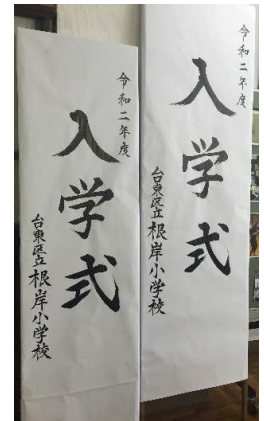 令和二年度
入学式
台東区立根岸小学校
令和二年度
入学式
台東区立根岸小学校